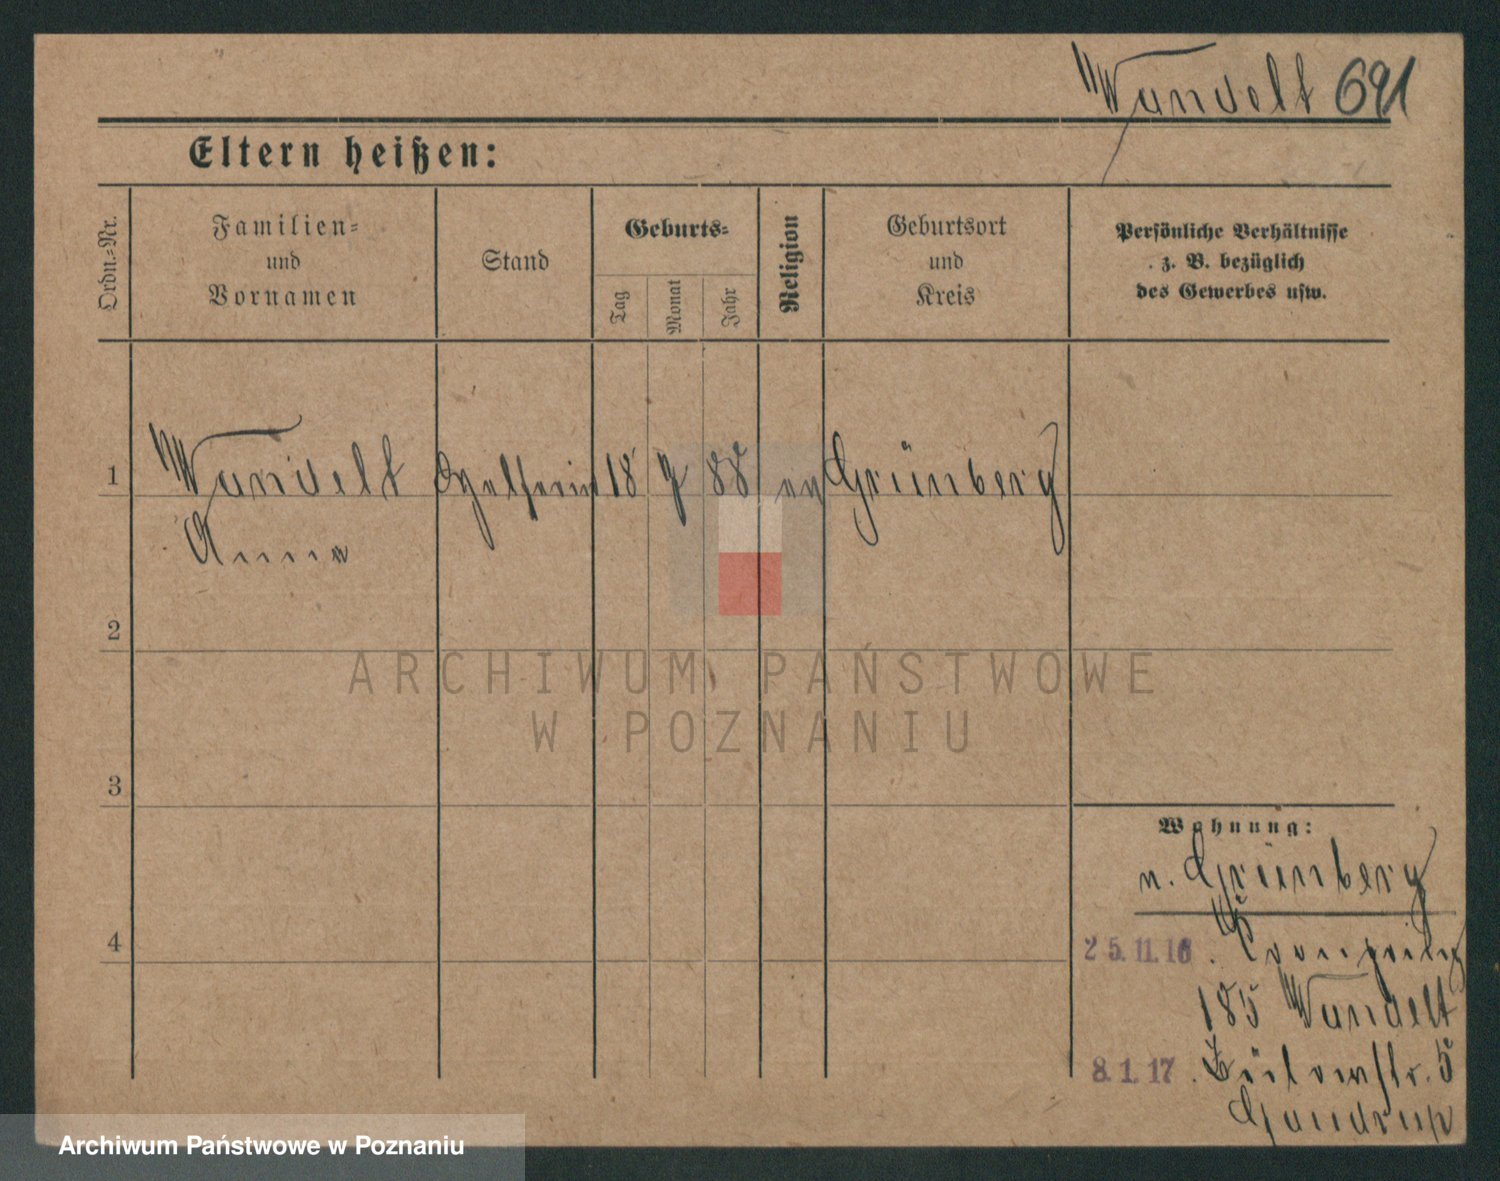 Wandelt 691
Eltern heißen:
Ordn.-Nr.
Familien-
und
Vornamen
Stand
Geburts-
Tag
Monat
Jahr
Religion
Geburtsort
und
Kreis
Persönliche Verhältnisse
z. B. bezüglich
des Gewerbes usw.
1 Wandelt 18 7 88 ev Grünberg
Anna
2
3
4
Wohnung:
n. Grünberg
25.11.16. Kronprinz
185 Wandelt
8.1.17. Bülowstr. 5
ARCHIWUM PAŃSTWOWE
W POZNANIU
Archiwum Państwowe w Poznaniu